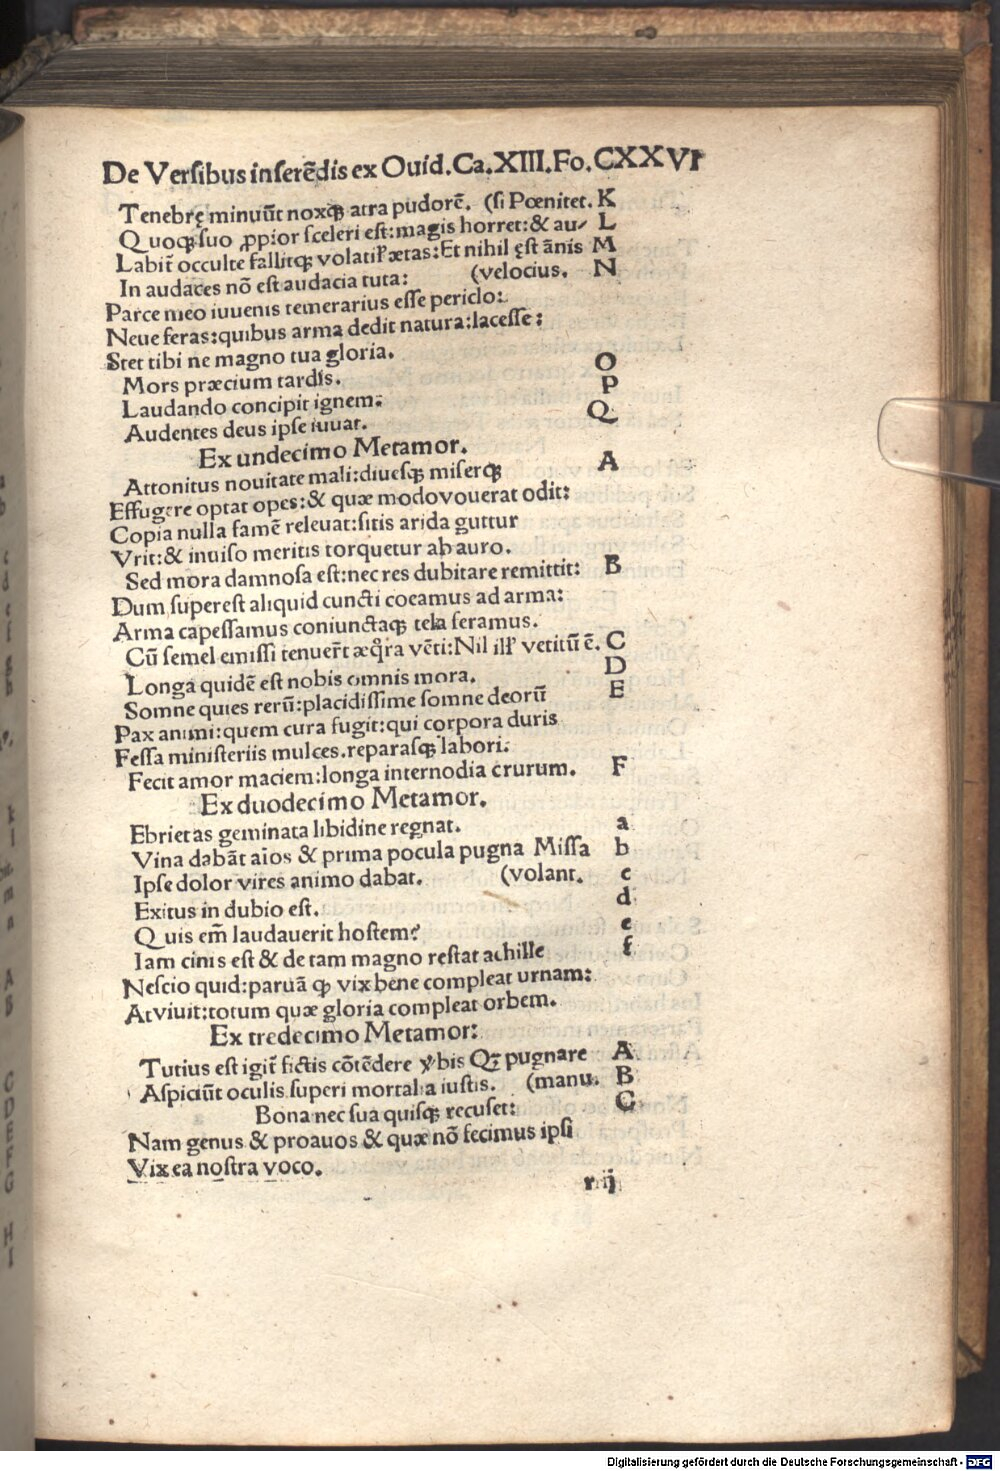 De Versibus inserẽdis ex Ouid. Ca. XIII. Fo. CXXVI
Tenebrę minuũt noxqꝫ atra pudorẽ. (si Pœnitet. K
Quoqꝫ suo ꝓpior sceleri est: magis horret: & au⸗ L
Labit̃ occulte fallitqꝫ volatil᷒ ætas: Et nihil ęst ãnis M
In audaces nõ est audacia tuta: (velocius. N
Parce meo iuuenis temerarius esse periclo:
Neue feras: quibus arma dedit natura: lacesse:
Stet tibi ne magno tua gloria.
Mors præcium tardis. O
Laudando concipit ignem: P
Audentes deus ipse iuuat. Q
Ex undecimo Metamor.
Attonitus nouitate mali: diuesqꝫ miserqꝫ A
Effugere optat opes: & quæ modo vouerat odit:
Copia nulla famẽ releuat: sitis arida guttur
Vrit: & inuiso meritis torquetur ab auro.
Sed mora damnosa est: nec res dubitare remittit: B
Dum superest aliquid cuncti coeamus ad arma:
Arma capessamus coniunctaqꝫ tela feramus.
Cũ semel emissi tenuer̃t æq̃ra vẽti: Nil ill᷒ vetitũ ẽ. C
Longa quidẽ est nobis omnis mora. D
Somne quies rerũ: placidissime somne deorũ E
Pax animi: quem cura fugit: qui corpora duris
Fessa ministeriis mulces. reparasqꝫ labori:
Fecit amor maciem: longa internodia crurum. F
Ex duodecimo Metamor.
Ebrietas geminata libidine regnat. a
Vina dabãt aĩos & prima pocula pugna Missa b
Ipse dolor vires animo dabat. (volant. c
Exitus in dubio est. d
Quis em̃ laudauerit hostem? e
Iam cinis est & de tam magno restat achille f
Nescio quid: paruã ꝙ vix bene compleat urnam:
At viuit: totum quæ gloria compleat orbem.
Ex tredecimo Metamor:
Tutius est igit̃ fictis cõtẽdere v̾bis Qꝫ pugnare A
Aspiciũt oculis superi mortalia iustis. (manu. B
Bona nec sua quisqꝫ recuset: C
Nam genus & proauos & quæ nõ fecimus ipsi
Vix ea nostra voco.
r ij
Digitalisierung gefördert durch die Deutsche Forschungsgemeinschaft - DFG